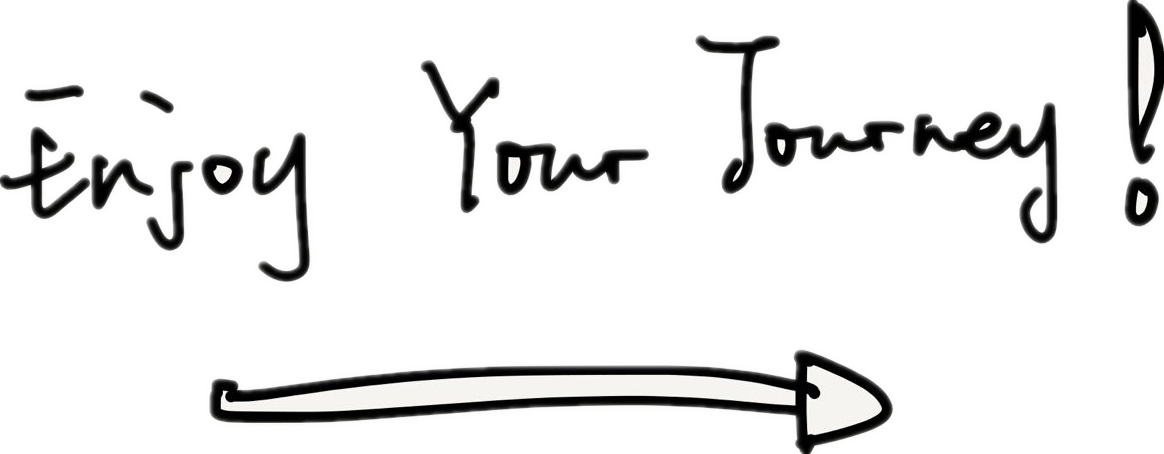 Enjoy Your Journey!